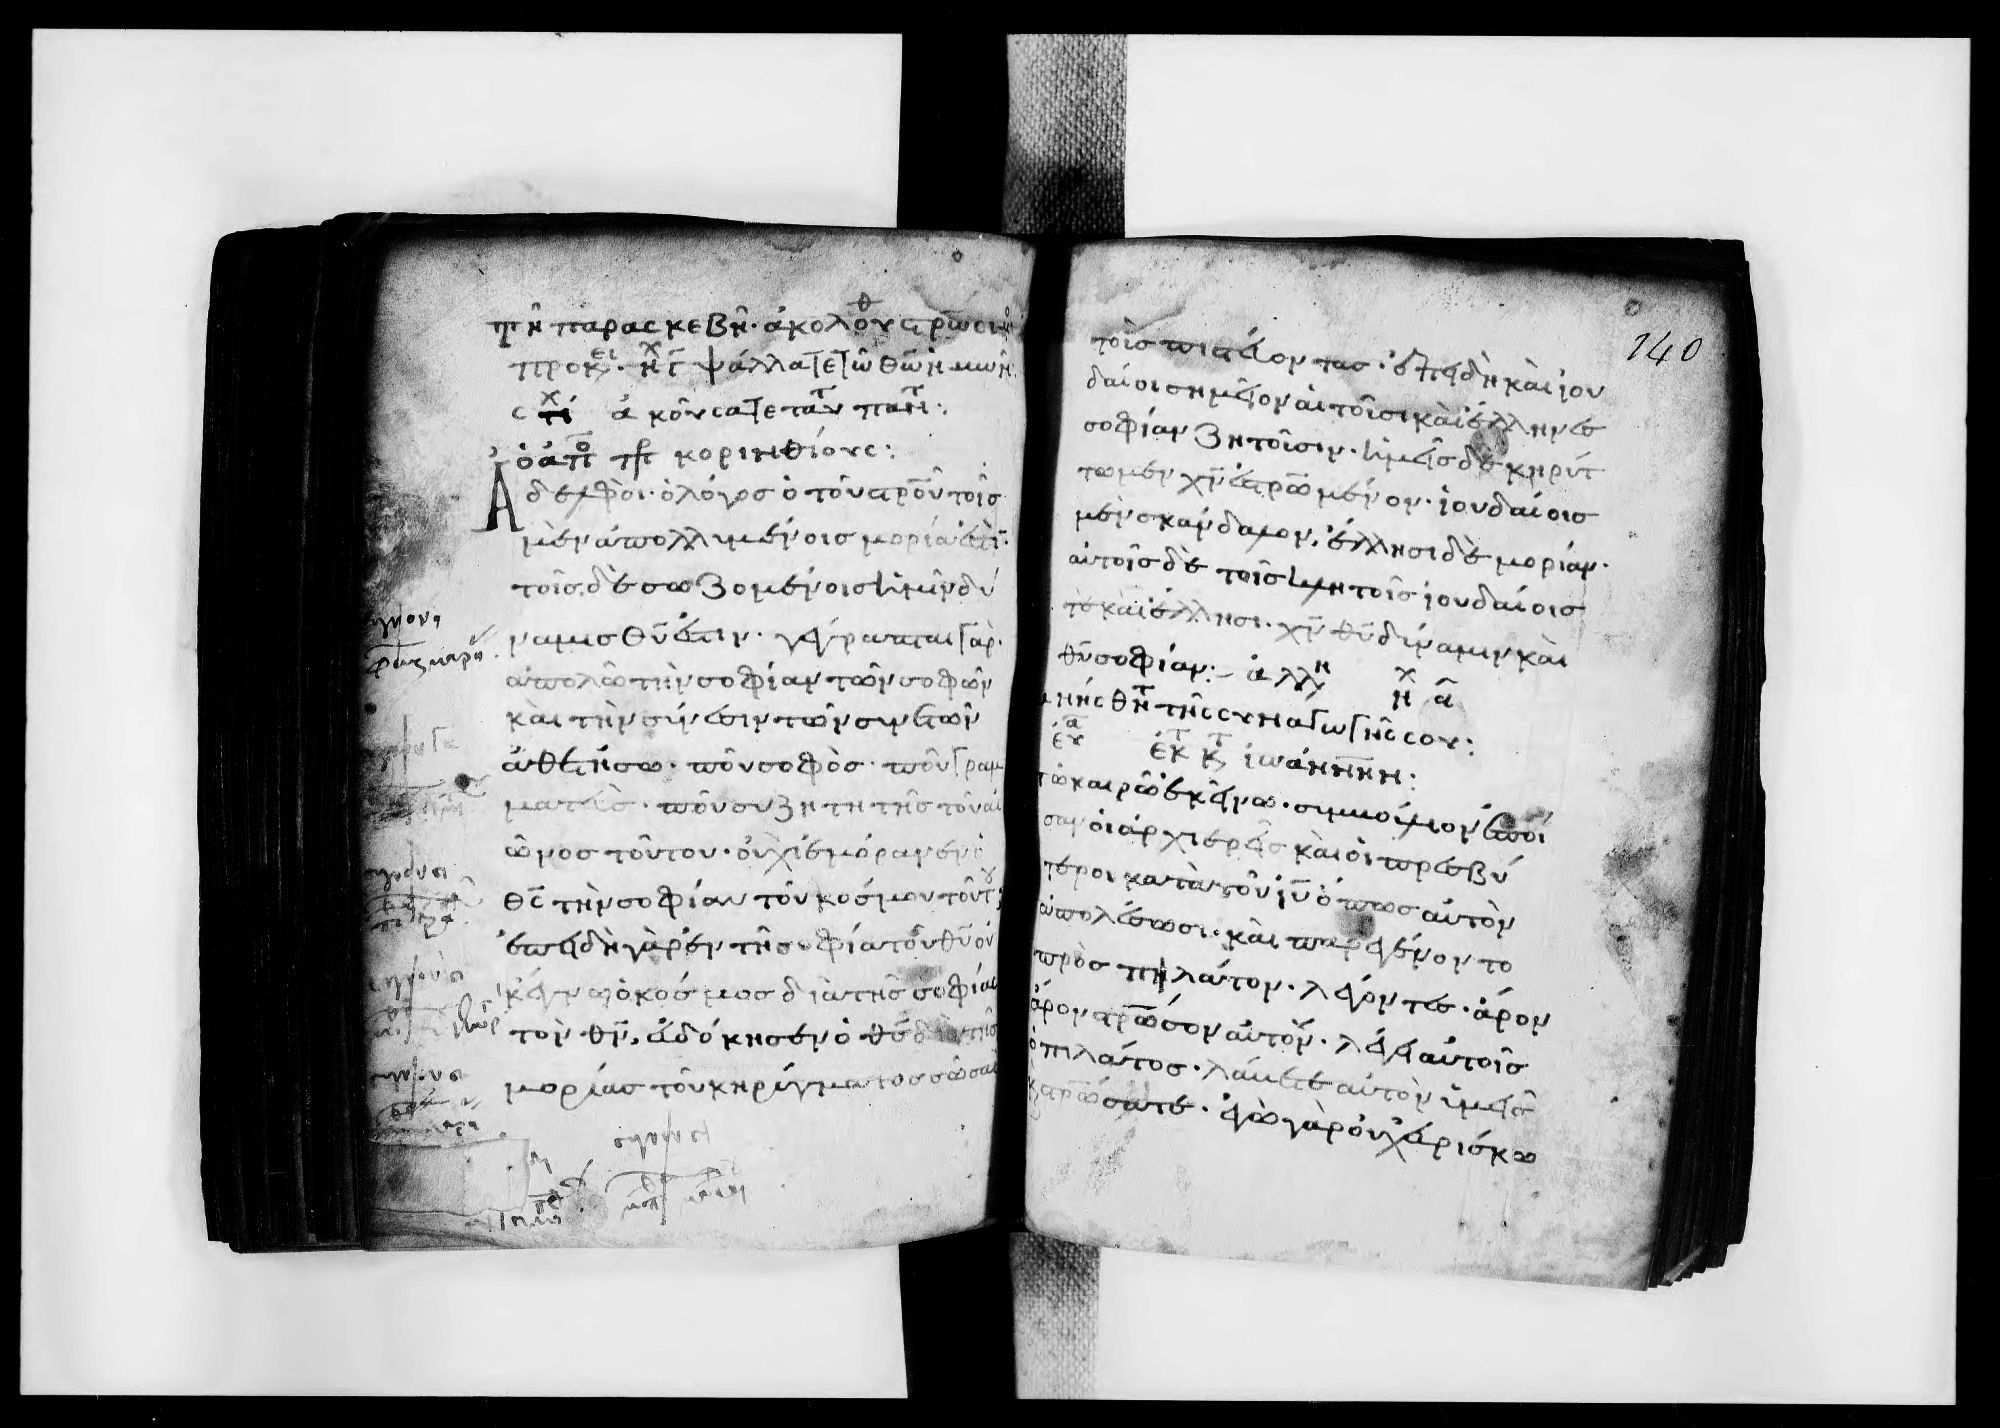 τῆ παρασκεβῆ· ἀκολοῦ στρωσιμ
προκει· ἦχ γ ψάλλατε τῶ θῶ ἡμῶν
στιχ ἀκούσατε ταῦτ πάντ:
ὁ ἀπο πρ κορινθίους:
Ἀδελφοὶ· ὁ λόγος ὁ τοῦ στροῦ τοῖς
μὲν ἀπολλυμένοις μορία ἐστὶ·
τοῖς δὲ σωζομένοις ἡμῖν δύ
ναμις θυ ἐστιν· γέγραπται γὰρ·
ἀπολῶ τὴν σοφίαν τῶν σοφῶν
καὶ τὴν σύνεσιν τῶν συνετῶν
ἀθετήσω· ποῦ σοφὸς· ποῦ γραμ
ματεὺς· ποῦ συζητητὴς τοῦ αἰ
ῶνος τούτου· οὐχὶ ἐμόρανεν ὁ
θς τὴν σοφίαν τοῦ κόσμου τούτου;
ἐπειδὴ γὰρ ἐν τῆ σοφία τοῦ θυ οὐ
κ ἔγνω ὁ κόσμος διὰ τῆς σοφίας
τὸν θν, εὐδόκησεν ὁ θς διὰ τῆς
μορίας τοῦ κηρύγματος σῶσαι
140
τοῖς πιστεύοντας· ἐπειδὴ καὶ ἰου
δαίοι σημεῖον αἰτοῦσι καὶ ἕλληνες
σοφίαν ζητοῦσιν· ἡμεῖς δὲ κηρύτ
τωμεν χν ἐστρωμένον· ἰουδαίοις
μὲν σκάνδαλον, ἕλλησι δὲ μορίαν·
αὐτοῖς δὲ τοῖς κλητοῖς ἰουδαίοις
τὲ καὶ ἕλλησι· χν θυ δύναμιν καὶ
θυ σοφίαν:– ἀλλη ἦχ α
μνήσθητ τῆς συναγωγῆς σου:
ευα ἐκ τ κτ ἰωάννην:
τῶ καιρῶ ἐκείνω· συμβούλιον ἐποί
σαν οἱ ἀρχιερεῖς καὶ οἱ πρεσβύ
τεροι κατὰ τοῦ ιυ ὅπως αὐτὸν
ἀπολέσωσι· καὶ παρεγένοντο
πρὸς πηλάτον· λέγοντες· ἆρον
ἆρον στρωσον αὐτόν· λέγει αὐτοῖς
ὁ πιλάτος· λάβετε αὐτὸν ὑμεῖς
κ στρώσατε· ἐγὼ γὰρ οὐχ εὑρίσκω